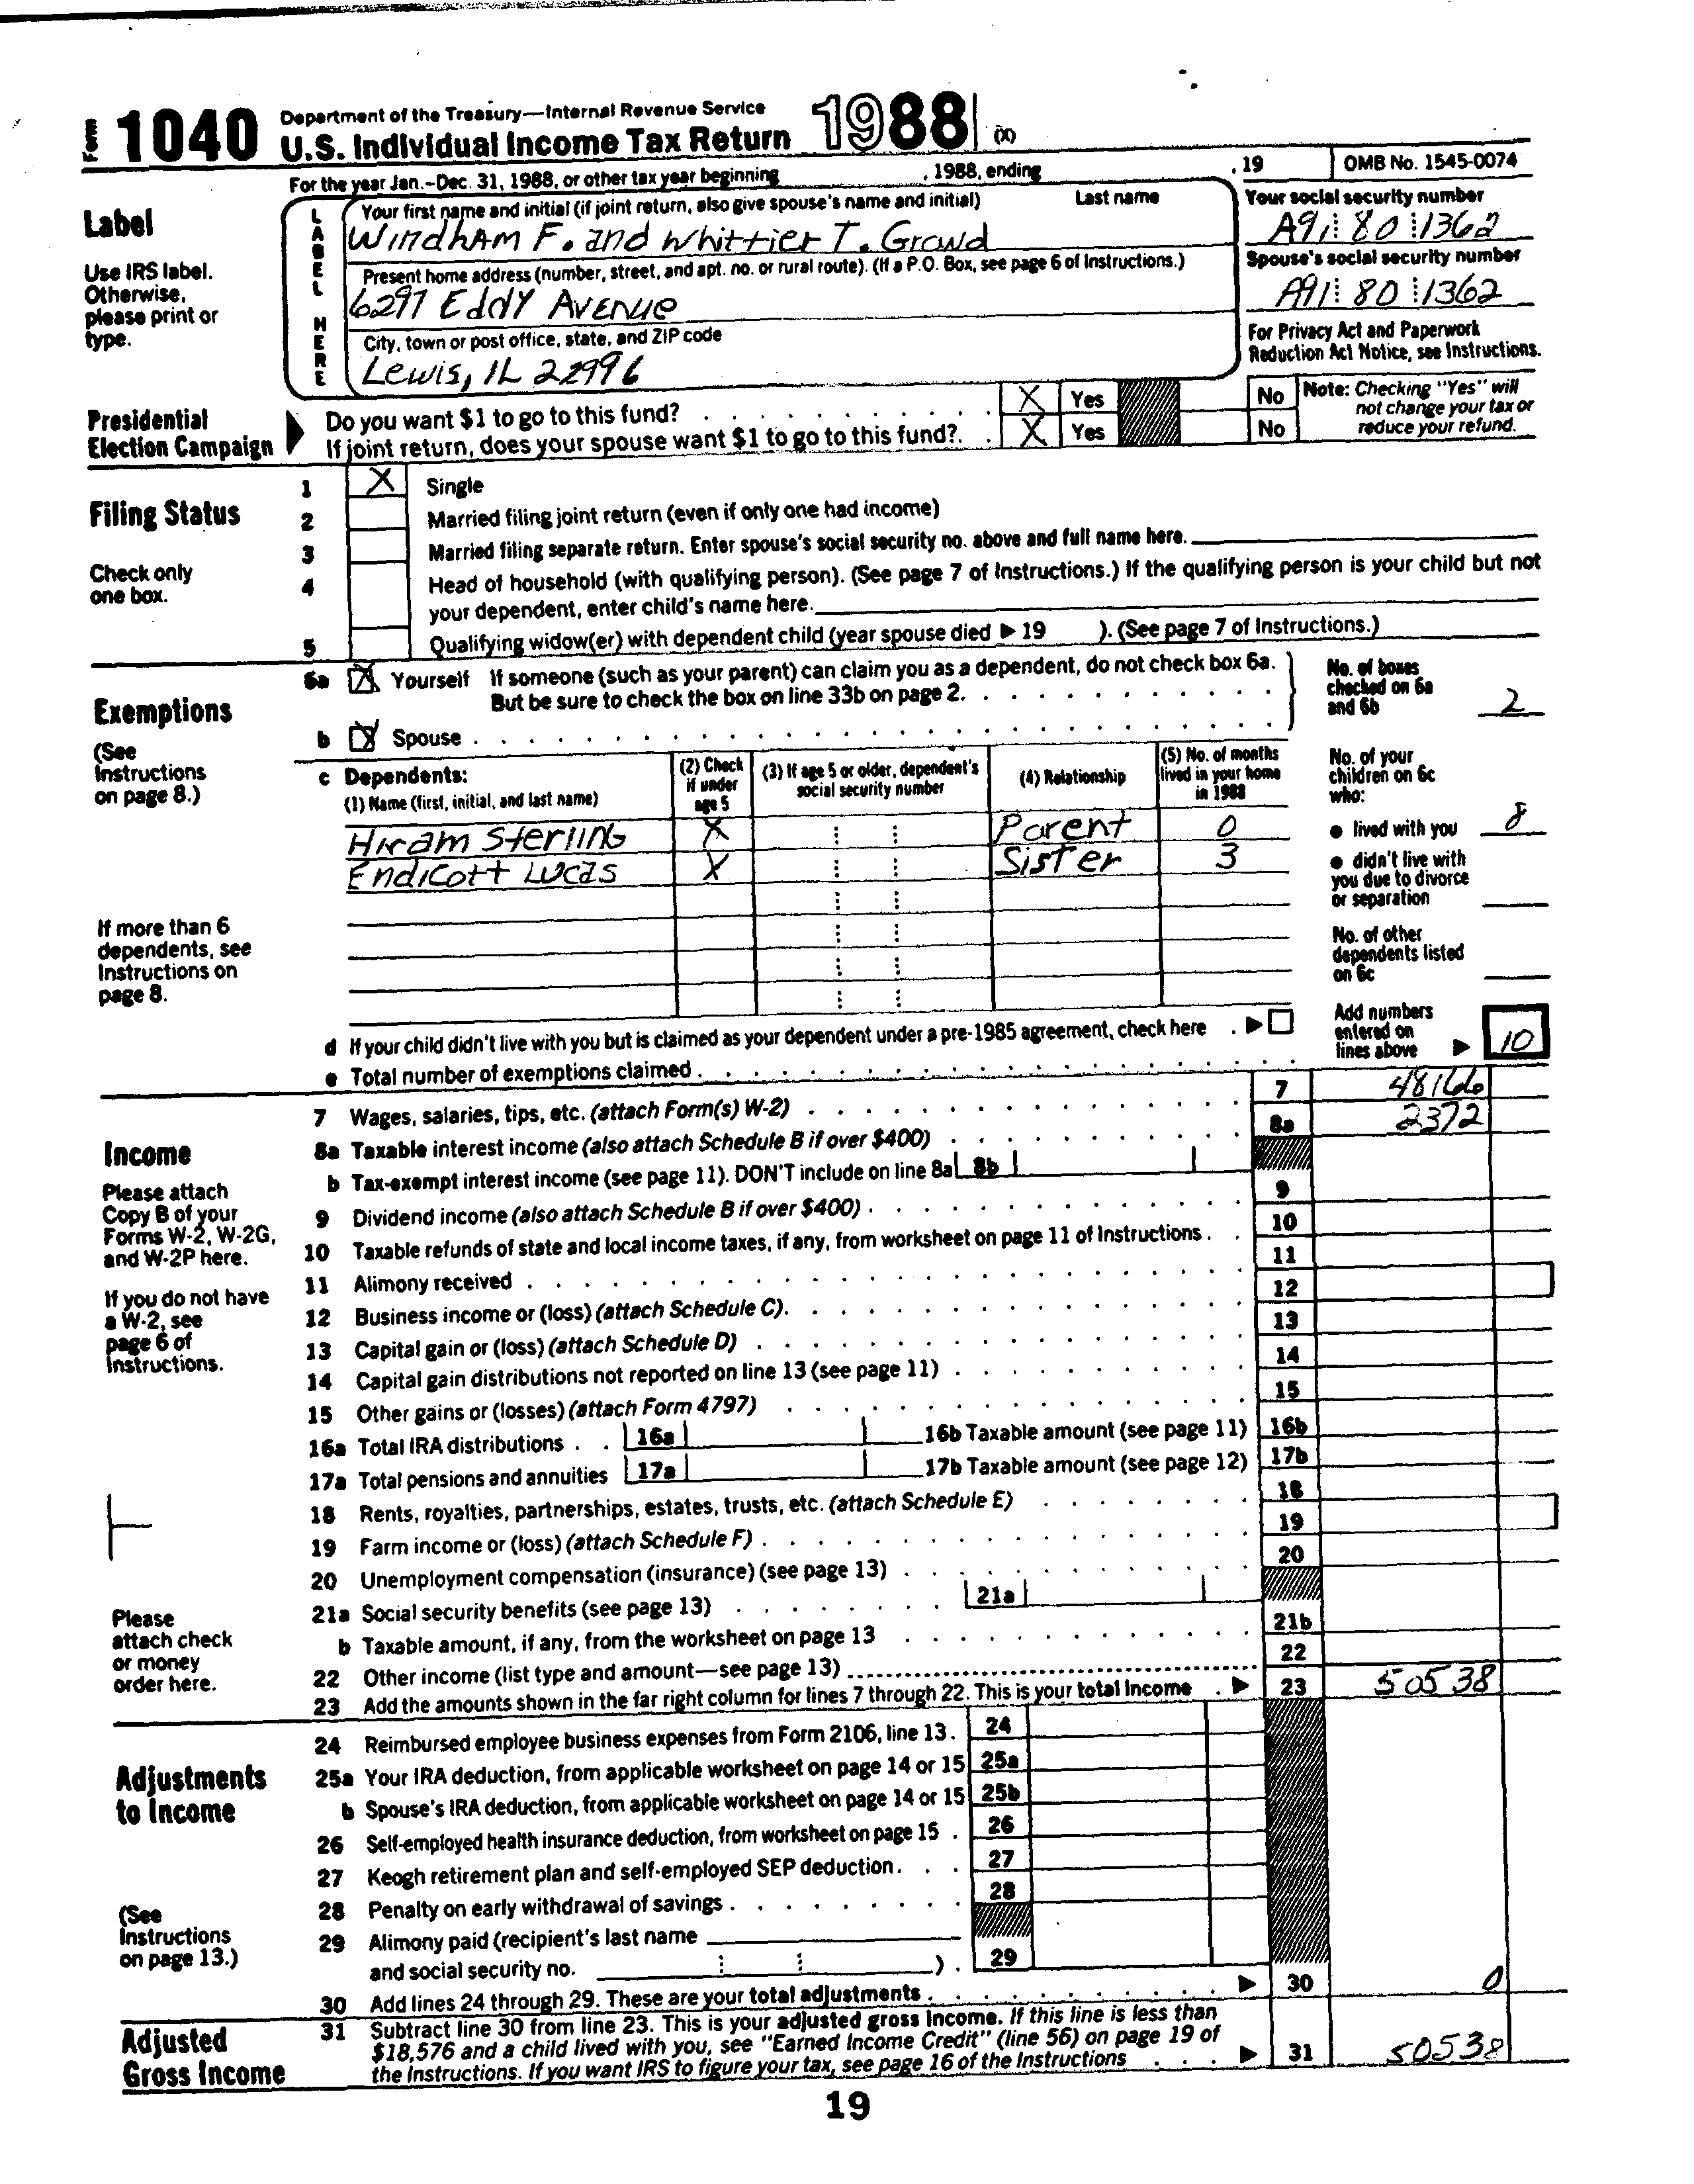 Form 1040 Department of the Treasury—Internal Revenue Service
U.S. Individual Income Tax Return 1988 (X)
For the year Jan.-Dec. 31, 1988, or other tax year beginning , 1988, ending , 19 OMB No. 1545-0074
Label
Use IRS label.
Otherwise,
please print or
type.
LABEL HERE
Your first name and initial (if joint return, also give spouse's name and initial) Last name
Windham F. and Whittier T. Grawd
Present home address (number, street, and apt. no. or rural route). (If a P.O. Box, see page 6 of Instructions.)
6297 Eddy Avenue
City, town or post office, state, and ZIP code
Lewis, IL 22996
Your social security number
A91 80 1362
Spouse's social security number
A91 80 1362
For Privacy Act and Paperwork
Reduction Act Notice, see Instructions.
Presidential
Election Campaign
Do you want $1 to go to this fund? X Yes No
If joint return, does your spouse want $1 to go to this fund? X Yes No
Note: Checking "Yes" will
not change your tax or
reduce your refund.
Filing Status
Check only
one box.
1 X Single
2 Married filing joint return (even if only one had income)
3 Married filing separate return. Enter spouse's social security no. above and full name here.
4 Head of household (with qualifying person). (See page 7 of Instructions.) If the qualifying person is your child but not
your dependent, enter child's name here.
5 Qualifying widow(er) with dependent child (year spouse died ▶ 19 ). (See page 7 of Instructions.)
Exemptions
(See
Instructions
on page 8.)
If more than 6
dependents, see
Instructions on
page 8.
6a X Yourself If someone (such as your parent) can claim you as a dependent, do not check box 6a.
But be sure to check the box on line 33b on page 2.
b X Spouse
No. of boxes
checked on 6a
and 6b 2
c Dependents:
(1) Name (first, initial, and last name)
(2) Check
if under
age 5
(3) If age 5 or older, dependent's
social security number
(4) Relationship
(5) No. of months
lived in your home
in 1988
Hiram Sterling X Parent 0
Endicott Lucas X Sister 3
No. of your
children on 6c
who:
● lived with you 8
● didn't live with
you due to divorce
or separation
No. of other
dependents listed
on 6c
d If your child didn't live with you but is claimed as your dependent under a pre-1985 agreement, check here ▶
e Total number of exemptions claimed
Add numbers
entered on
lines above ▶ 10
Income
Please attach
Copy B of your
Forms W-2, W-2G,
and W-2P here.
If you do not have
a W-2, see
page 6 of
Instructions.
Please
attach check
or money
order here.
7 Wages, salaries, tips, etc. (attach Form(s) W-2) 7 48166
8a Taxable interest income (also attach Schedule B if over $400) 8a 2372
b Tax-exempt interest income (see page 11). DON'T include on line 8a 8b
9 Dividend income (also attach Schedule B if over $400) 9
10 Taxable refunds of state and local income taxes, if any, from worksheet on page 11 of Instructions 10
11 Alimony received 11
12 Business income or (loss) (attach Schedule C) 12
13 Capital gain or (loss) (attach Schedule D) 13
14 Capital gain distributions not reported on line 13 (see page 11) 14
15 Other gains or (losses) (attach Form 4797) 15
16a Total IRA distributions 16a 16b Taxable amount (see page 11) 16b
17a Total pensions and annuities 17a 17b Taxable amount (see page 12) 17b
18 Rents, royalties, partnerships, estates, trusts, etc. (attach Schedule E) 18
19 Farm income or (loss) (attach Schedule F) 19
20 Unemployment compensation (insurance) (see page 13) 20
21a Social security benefits (see page 13) 21a
b Taxable amount, if any, from the worksheet on page 13 21b
22 Other income (list type and amount—see page 13) 22
23 Add the amounts shown in the far right column for lines 7 through 22. This is your total income ▶ 23 50538
Adjustments
to Income
(See
Instructions
on page 13.)
24 Reimbursed employee business expenses from Form 2106, line 13. 24
25a Your IRA deduction, from applicable worksheet on page 14 or 15 25a
b Spouse's IRA deduction, from applicable worksheet on page 14 or 15 25b
26 Self-employed health insurance deduction, from worksheet on page 15 26
27 Keogh retirement plan and self-employed SEP deduction 27
28 Penalty on early withdrawal of savings 28
29 Alimony paid (recipient's last name
and social security no. ) 29
30 Add lines 24 through 29. These are your total adjustments ▶ 30 0
Adjusted
Gross Income
31 Subtract line 30 from line 23. This is your adjusted gross income. If this line is less than
$18,576 and a child lived with you, see "Earned Income Credit" (line 56) on page 19 of
the Instructions. If you want IRS to figure your tax, see page 16 of the Instructions ▶ 31 50538
19